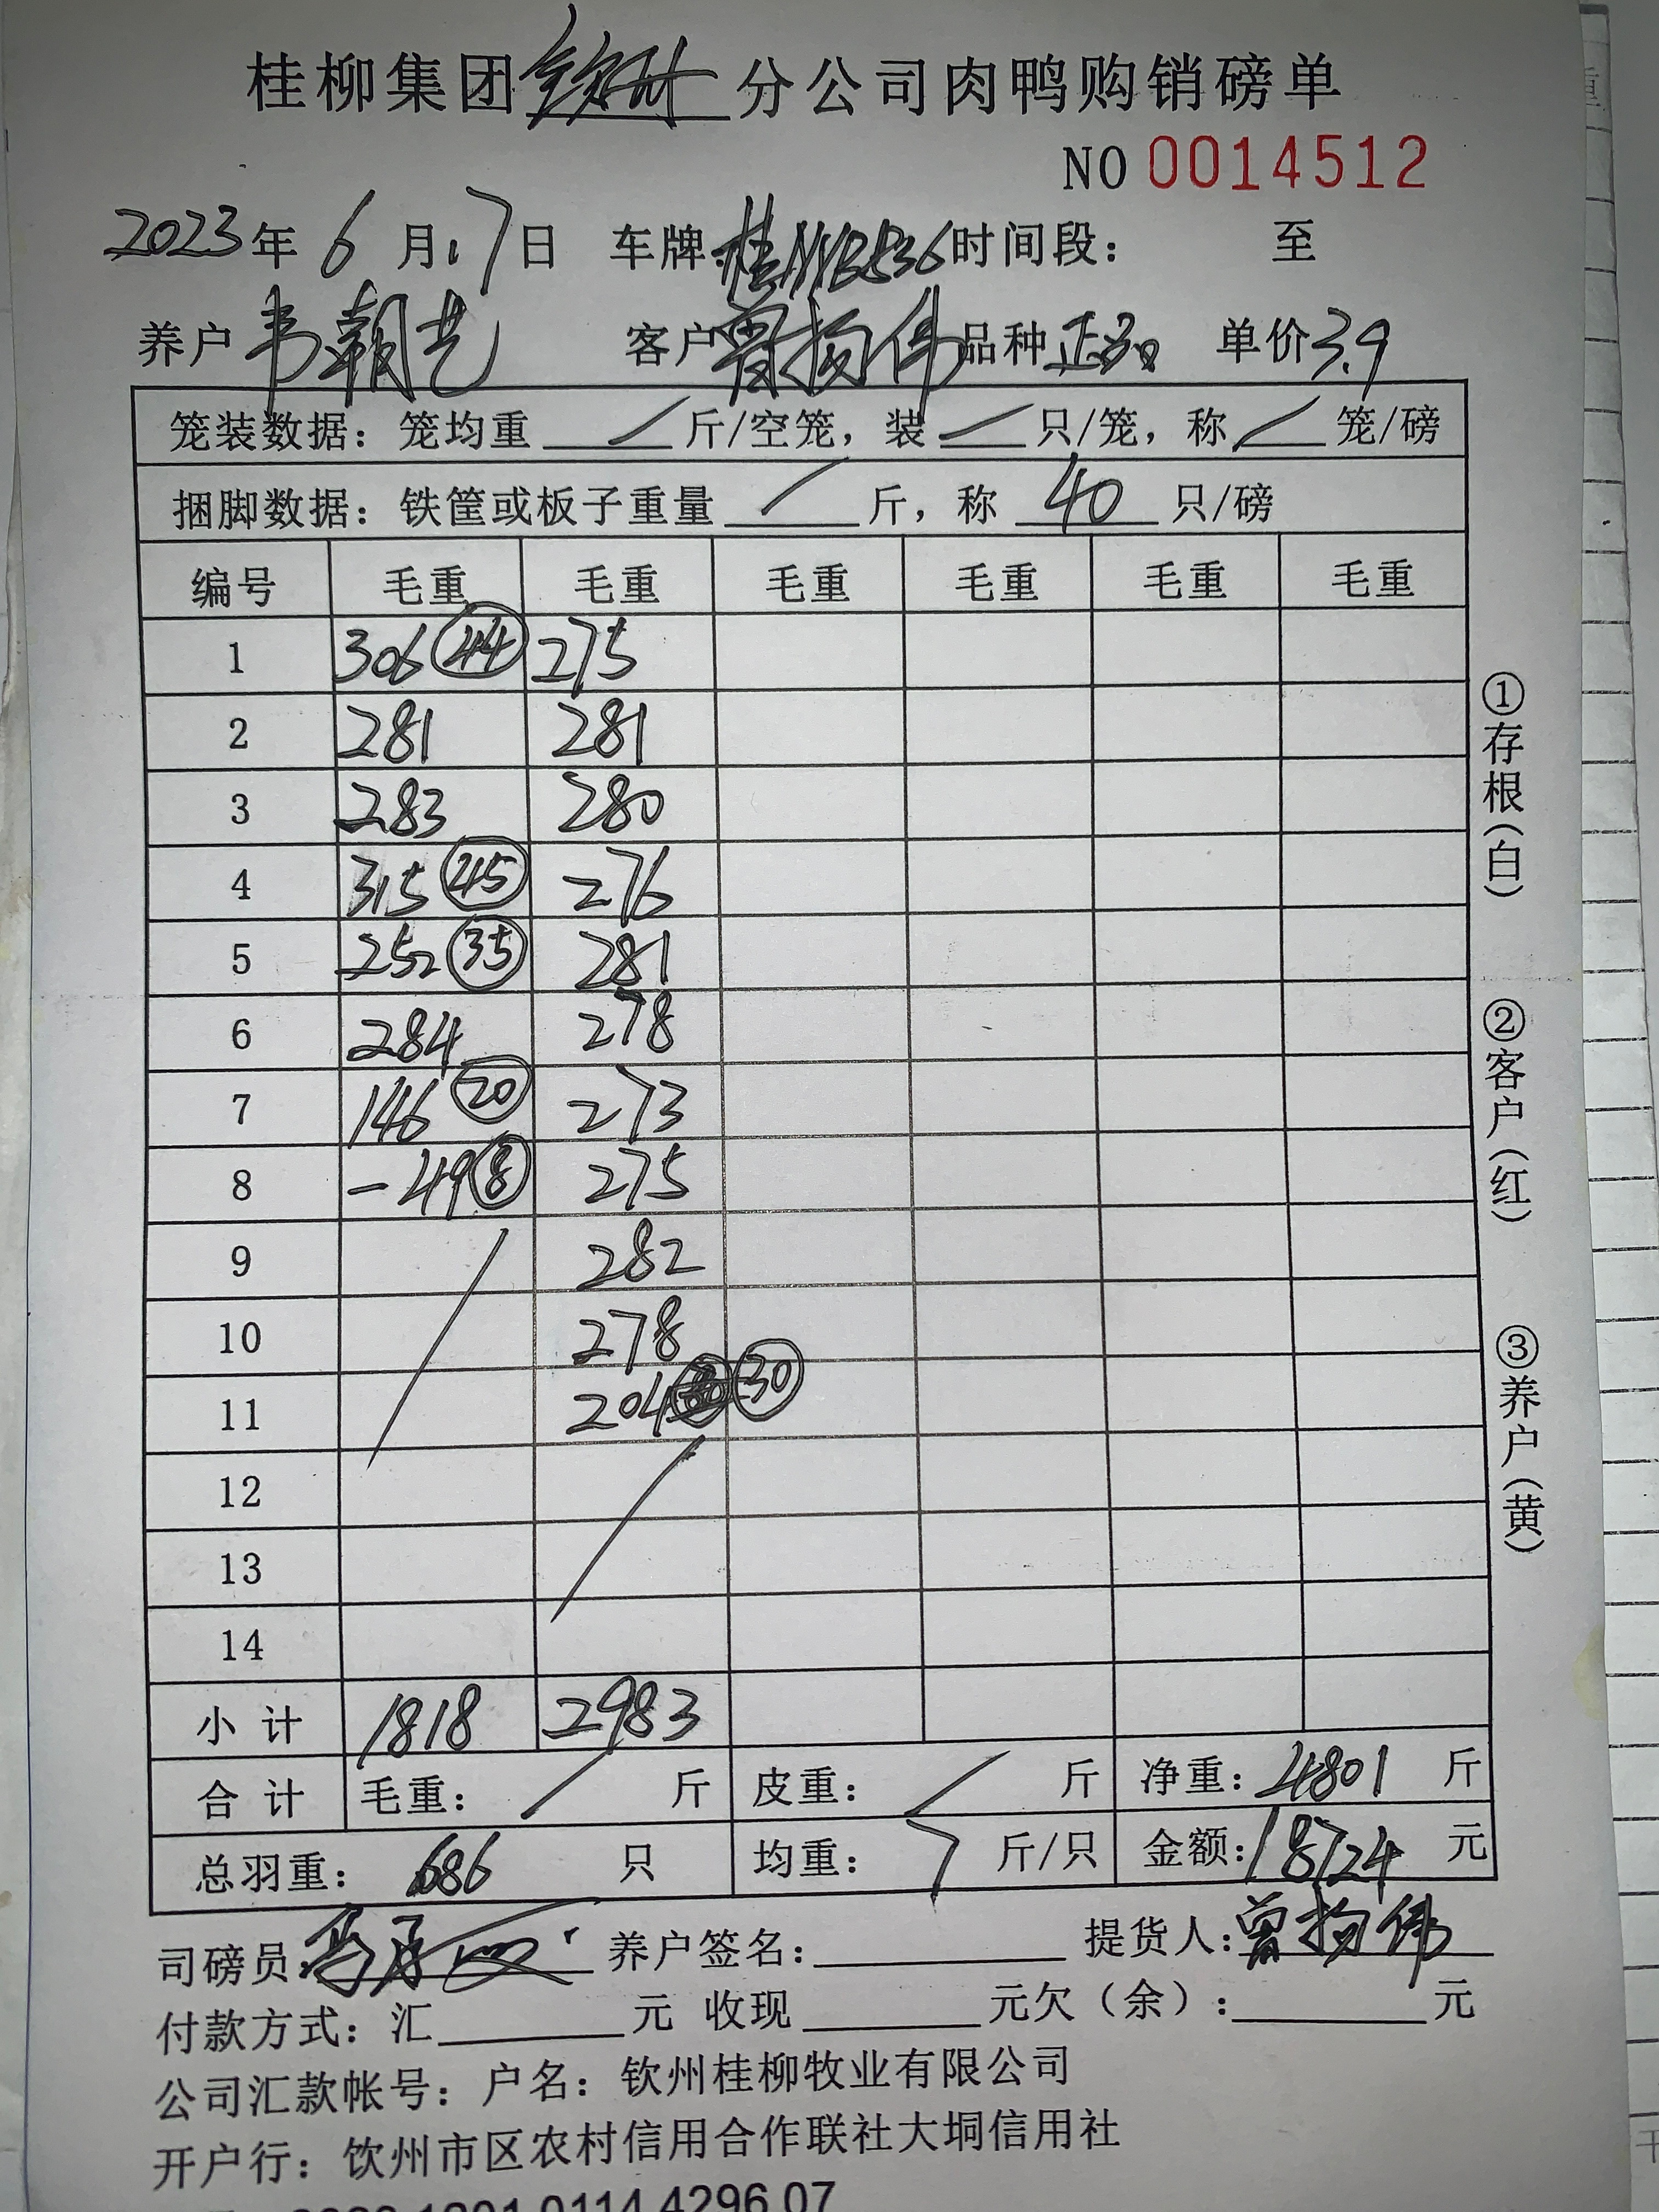 桂柳集团钦州分公司肉鸭购销磅单
NO 0014512
2023年6月17日 车牌:桂 时间段: 至
养户 韦朝艺 客户 曾扬伟 品种 正 单价3.9
笼装数据:笼均重 / 斤/空笼,装 / 只/笼,称 / 笼/磅
捆脚数据:铁筐或板子重量 / 斤,称 40 只/磅
编号 毛重 毛重 毛重 毛重 毛重 毛重
1 306 44 275
2 281 281
3 283 280
4 315 45 276
5 252 35 281
6 284 278
7 146 20 273
8 -49 8 275
9 282
10 278
11 204 30
12
13
14
小计 1818 2983
合计 毛重: / 斤 皮重: / 斤 净重:4801 斤
总羽重: 686 只 均重: 7 斤/只 金额:18724 元
司磅员: 养户签名: 提货人:曾扬伟
付款方式:汇 元 收现 元欠(余): 元
公司汇款帐号:户名:钦州桂柳牧业有限公司
开户行:钦州市区农村信用合作联社大垌信用社
①存根(白)
②客户(红)
③养户(黄)